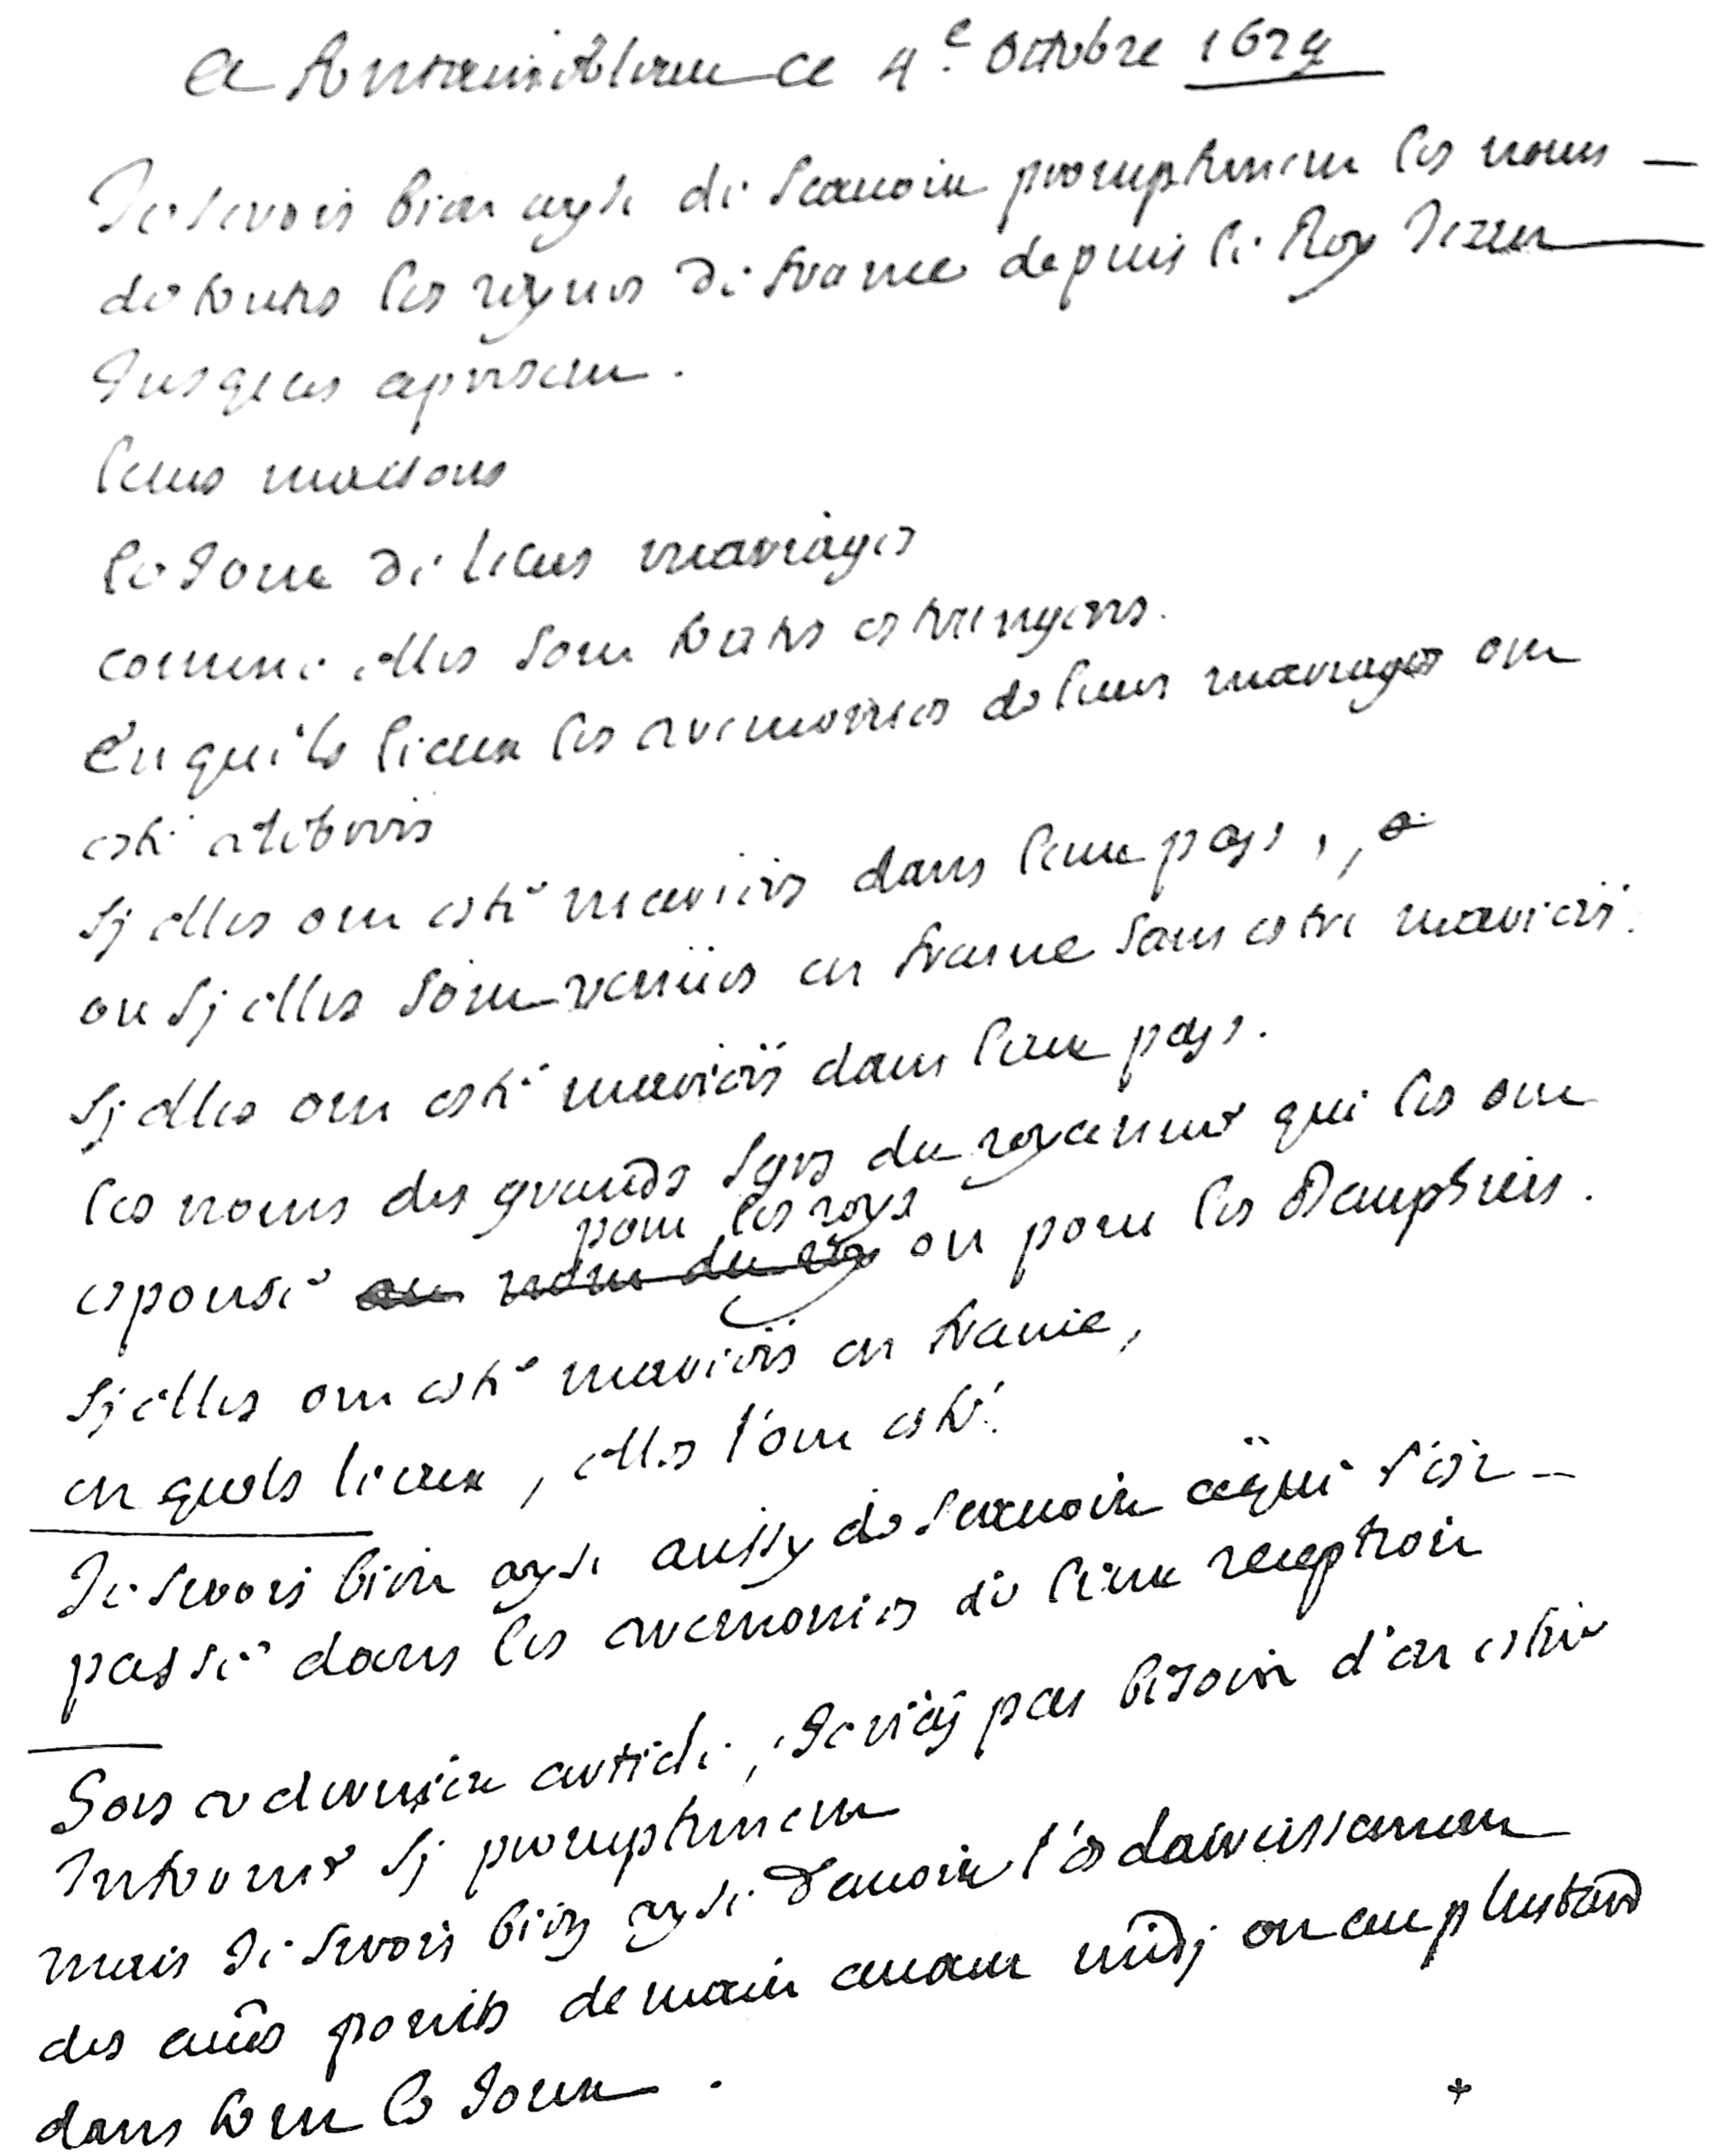 A fontainebleau ce 4e octobre 1679
Je serois bien ayse de scauoir promptement les noms
de toutes les reynes de france depuis le Roy Jean
Jusques apresent .
leurs maisons
le Jour de leurs mariages
comme elles sont toutes estrangeres .
En quels lieux les ceremonies de leurs mariages ont
esté celebrées
sj elles ont esté mariées dans leur pays , ,
ou sj elles sont venües en france sans estre mariées .
sj elles ont esté mariées dans leur pays .
les noms des grands sgrs du royaume qui les ont
pour les roys
espousé au nom du roy ou pour les Dauphins .
sj elles ont esté mariées en france ,
en quels lieux , elles l'ont esté .
Je serois bien ayse aussy de scauoir cequi s'est
passé dans les ceremonies de leur reception
Pour ce dernier article , Je n'aj pas besoin d'en estre
Informé sj promptement
mais Je serois bien ayse d'auoir l'esclaircissement
des aües points demain auant midj ou au plustard
dans tout le Jour .